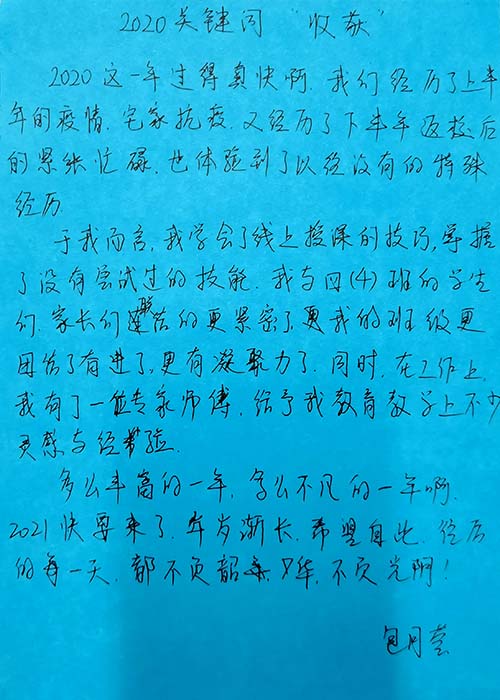 2020关键词 “收获”
2020这一年过得真快啊.我们经历了上半
年的疫情.宅家抗疫.又经历了下半年返校后
的紧张忙碌.也体验到了以往没有的特殊
经历.
于我而言,我学会了线上授课的技巧,掌握
了没有尝试过的技能.我与四(4)班的学生
们.家长们联络的更紧密了,我的班级更
团结了有进了,更有凝聚力了.同时,在工作上,
我有了一位专家师傅.给予我教育教学上不少
灵感与经验.
多么丰富的一年,多么不凡的一年啊.
2021快要来了.年岁渐长.希望自此.往后
的每一天.都不负韶华,不负光阴!